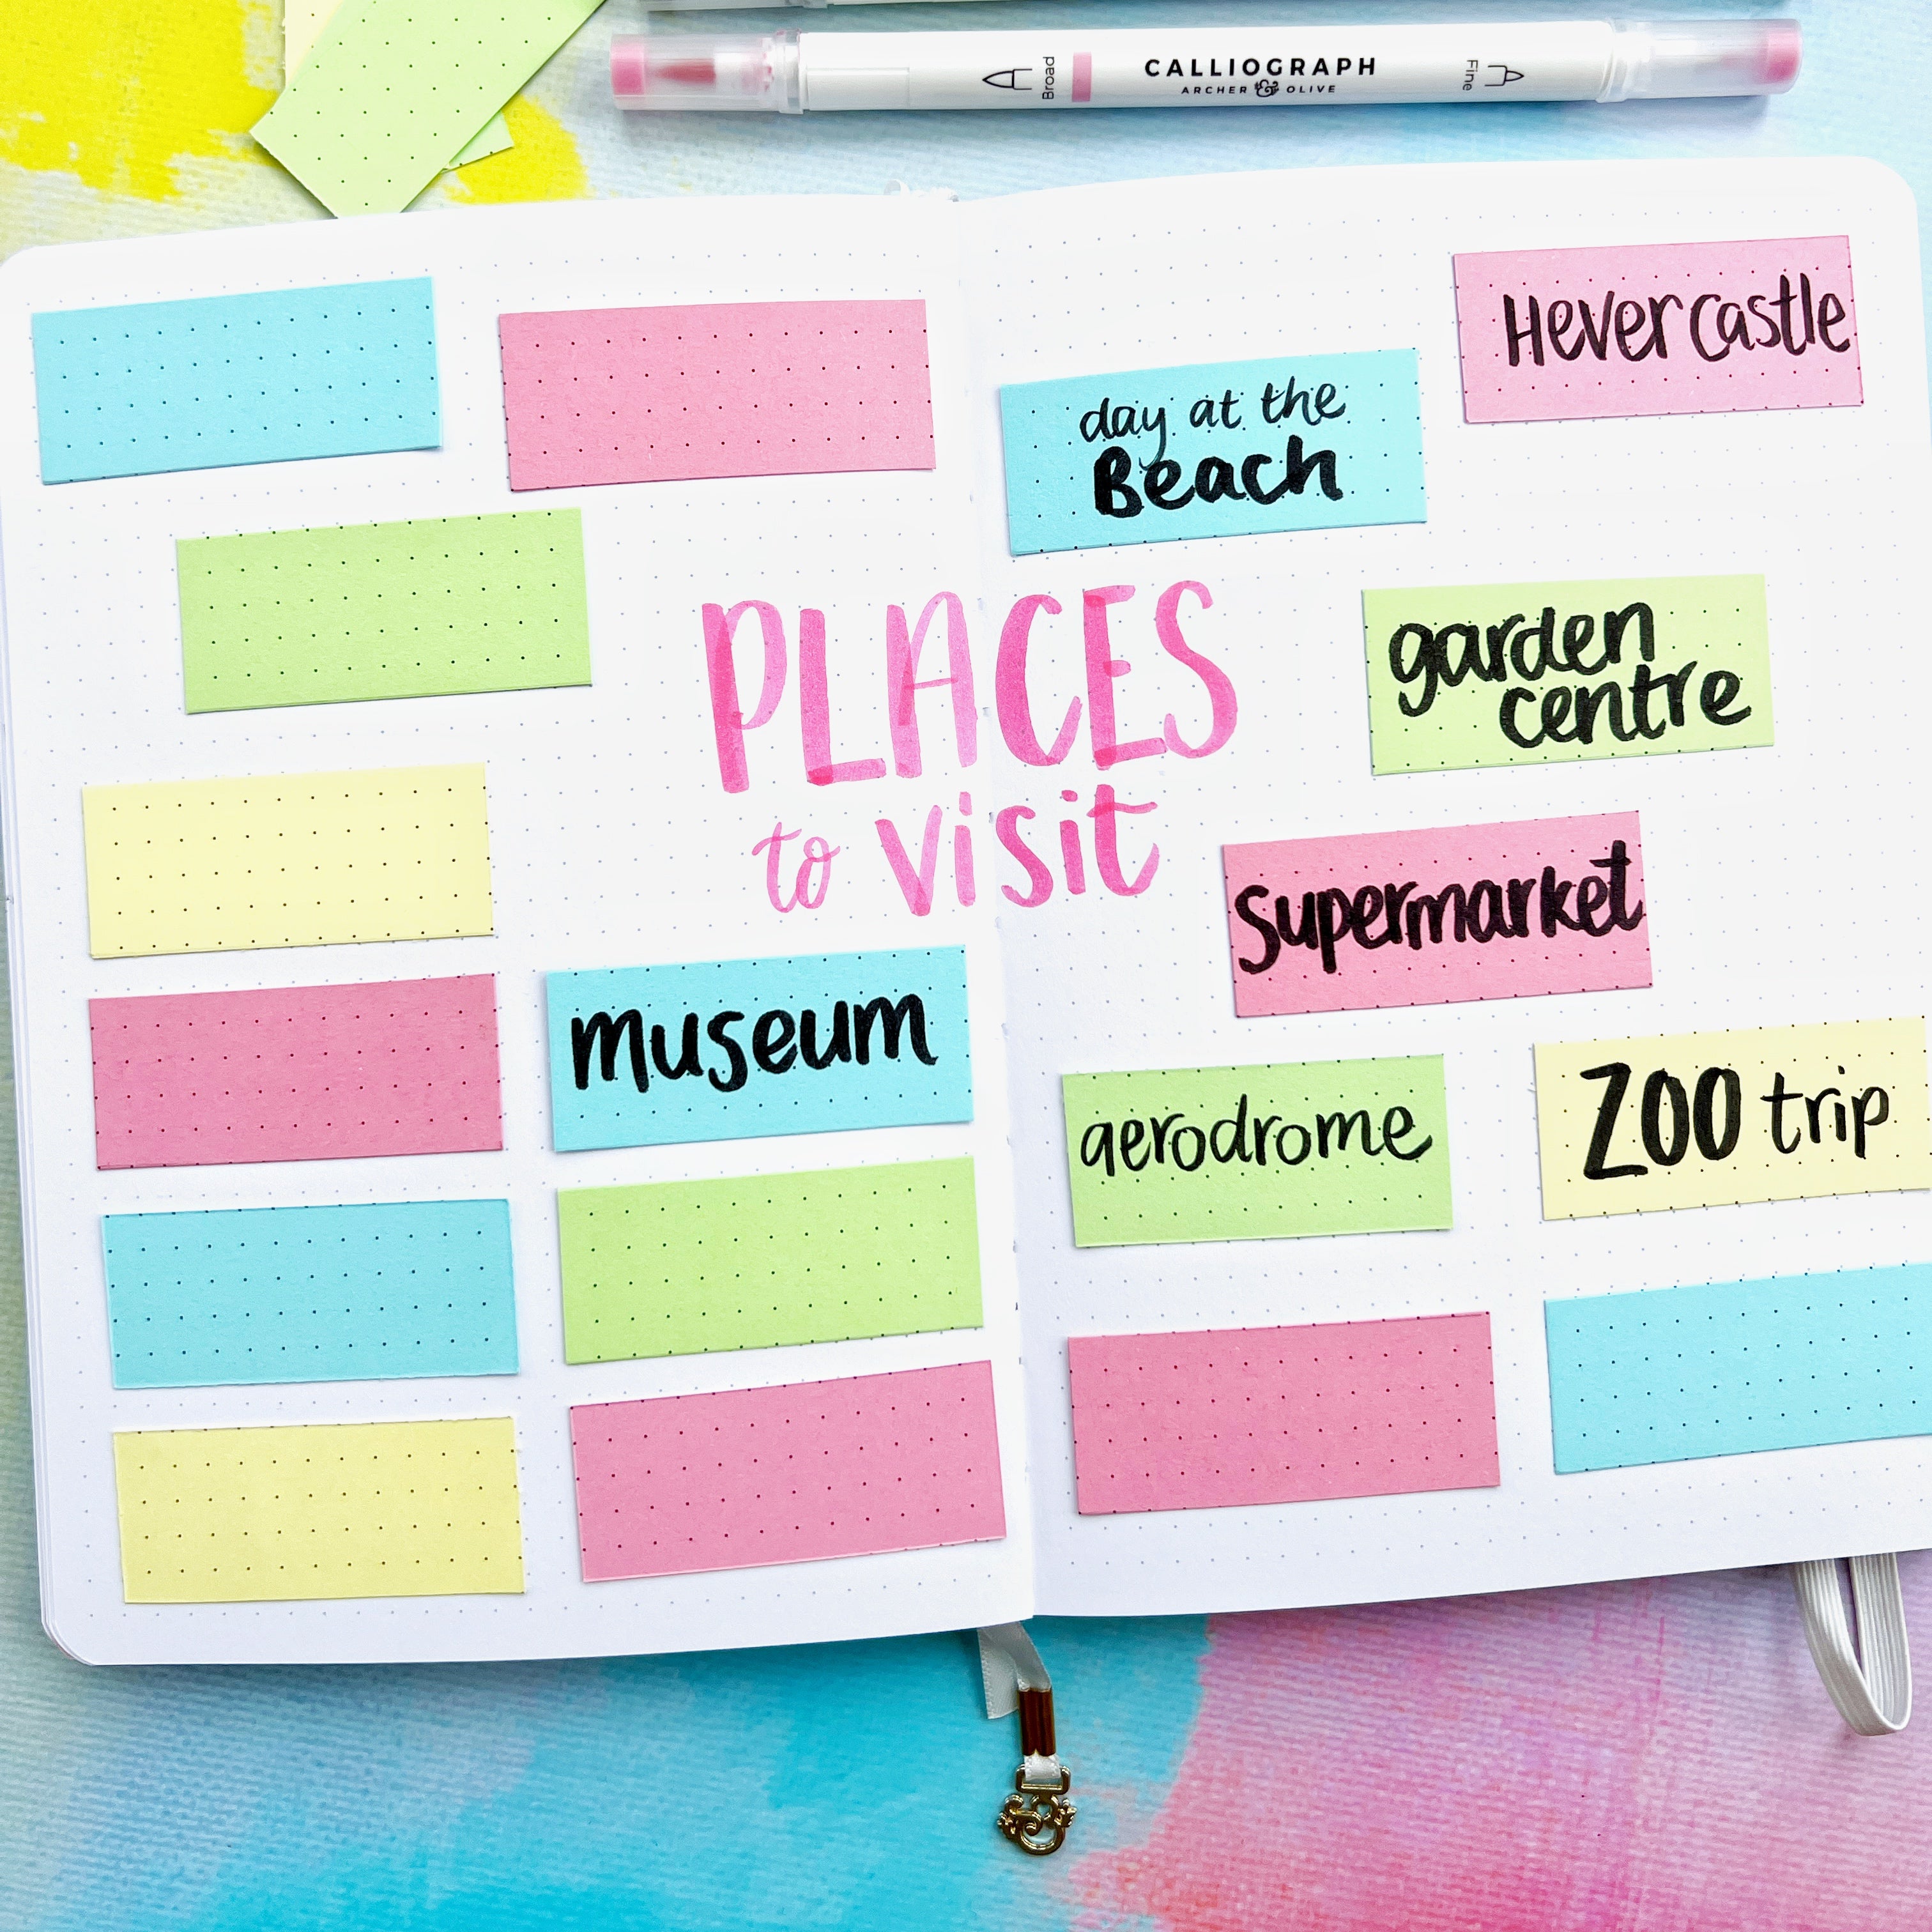 Broad
CALLIOGRAPH
ARCHER & OLIVE
Fine
Hever castle
day at the
Beach
PLACES
to visit
garden
centre
supermarket
museum
aerodrome
ZOO trip